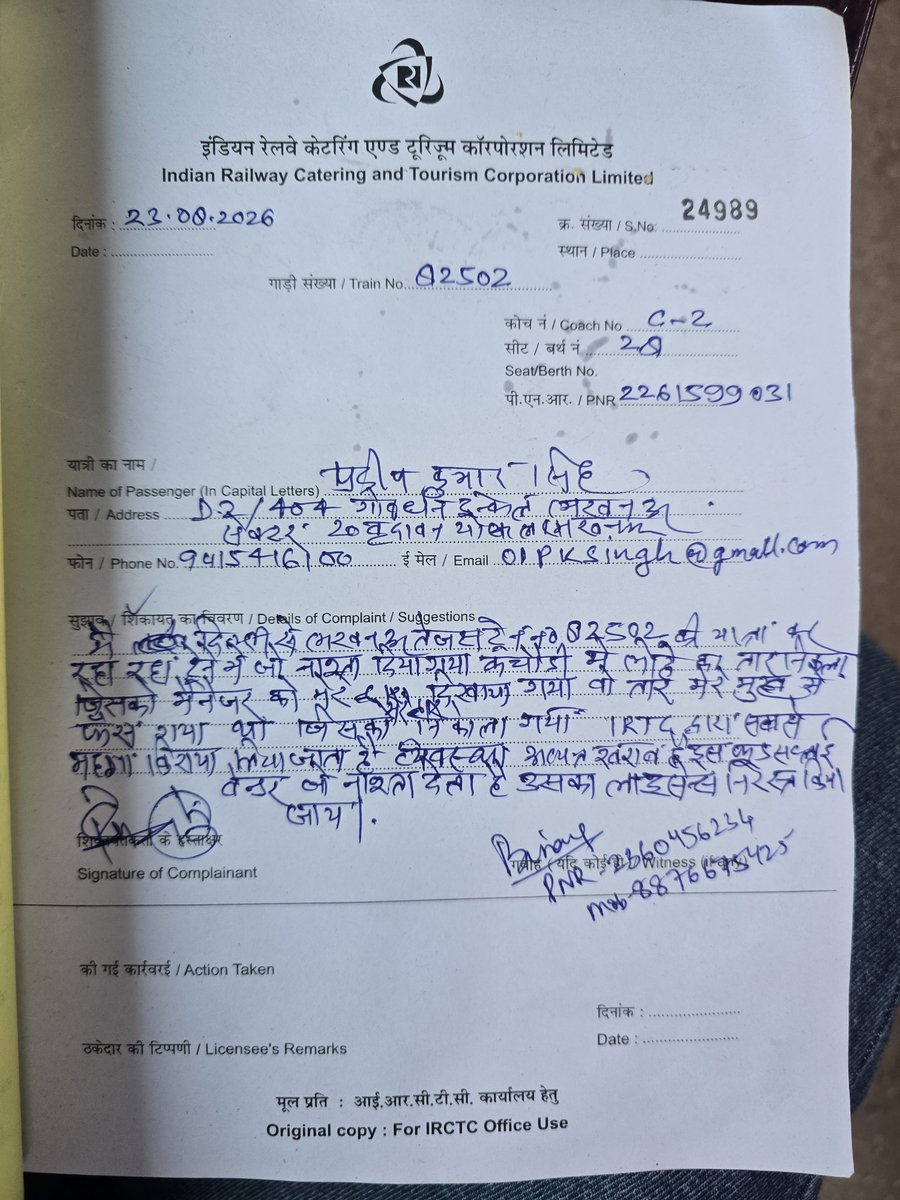 इंडियन रेलवे केटरिंग एण्ड टूरिज़्म कॉरपोरेशन लिमिटेड
Indian Railway Catering and Tourism Corporation Limited
दिनांक : 23.08.2026
Date :
क्र. संख्या / S.No: 24989
स्थान / Place
गाड़ी संख्या / Train No. 82502
कोच नं / Coach No C-2
सीट / बर्थ नं 28
Seat/Berth No.
पी.एन.आर. / PNR 2261599031
यात्री का नाम /
Name of Passenger (In Capital Letters) कुमार सिंह
पता / Address D2/404 लखनऊ
सेक्टर 20 वृंदावन लखनऊ
फोन / Phone No. 9415416100 ई मेल / Email 01PKSingh@gmail.com
सुझाव / शिकायत का विवरण / Details of Complaint / Suggestions
मैं दिल्ली से लखनऊ तेजस ट्रेन न0 82502 की यात्रा कर
रहा इसमें जो नाश्ता दिया गया कचौड़ी में लोहे का तार निकला
जिसको मैनेजर को दिखाया गया वो तार मेरे मुख में
फंस गया था जिसको निकाला गया IRTC द्वारा सबसे
महंगा किराया लिया जाता है व्यवस्था अत्यन्त खराब है इस फूड सप्लाई
वेन्डर जो नाश्ता देता है उसका लाइसेन्स निरस्त किया
जाय।
शिकायतकर्ता के हस्ताक्षर
Signature of Complainant
गवाह (यदि कोई हो) / Witness (if any)
PNR 2260456234
mob-
की गई कार्रवाई / Action Taken
दिनांक :
Date :
ठकेदार की टिप्पणी / Licensee's Remarks
मूल प्रति : आई.आर.सी.टी.सी. कार्यालय हेतु
Original copy : For IRCTC Office Use